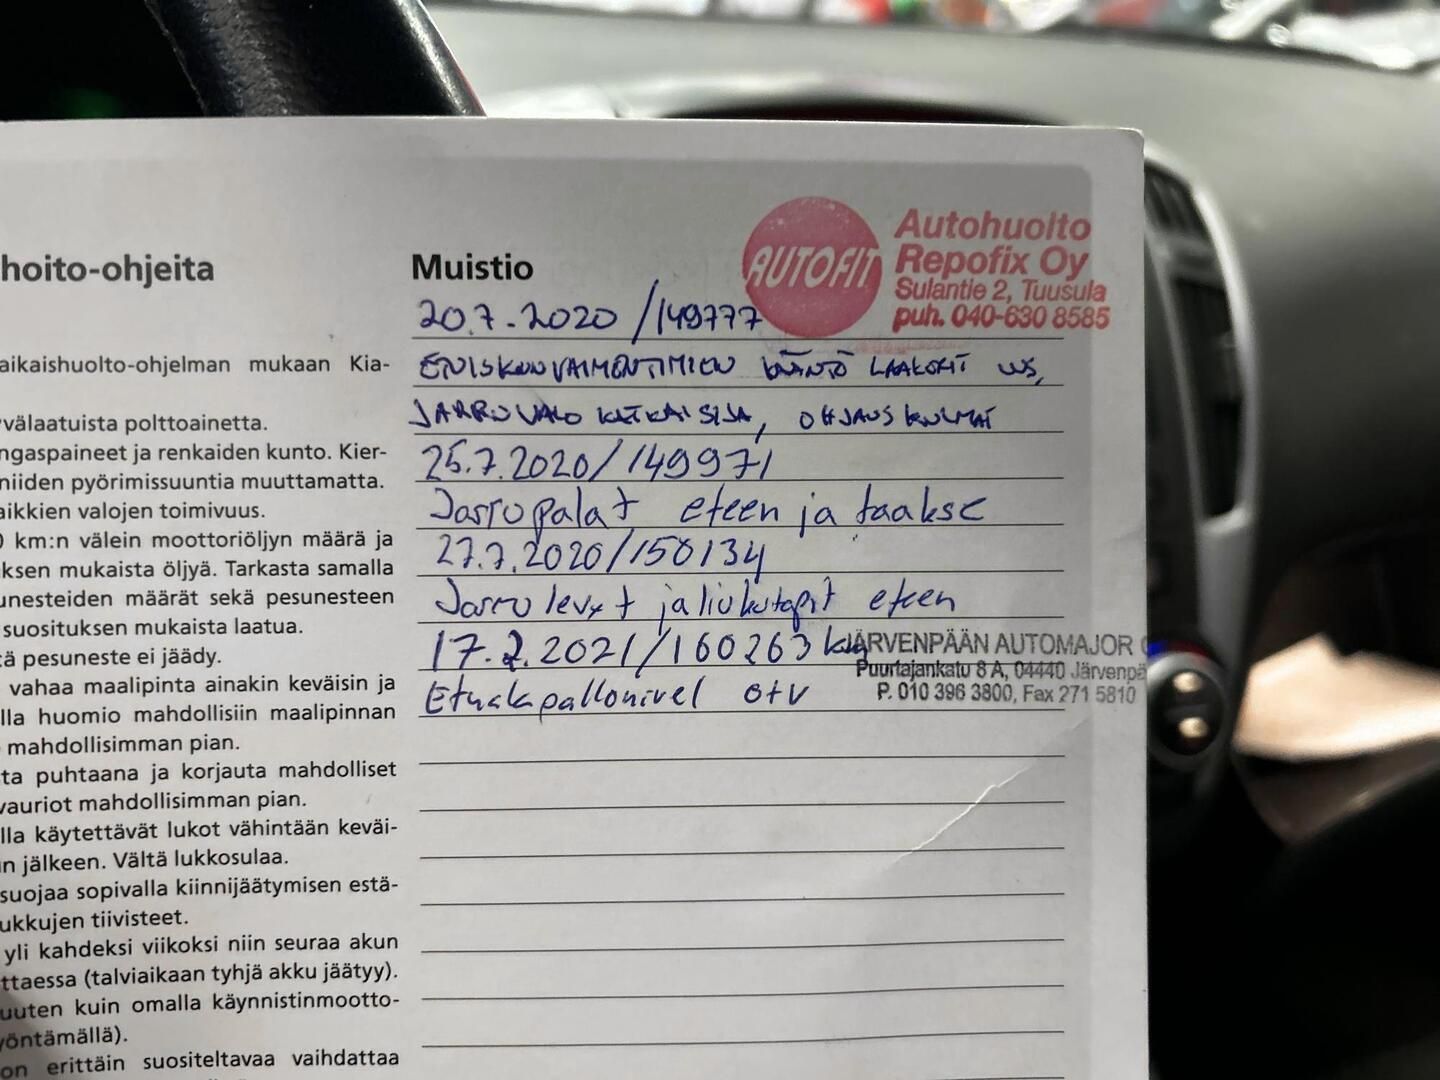 hoito-ohjeita
aikaishuolto-ohjelman mukaan Kia-
välaatuista polttoainetta.
ngaspaineet ja renkaiden kunto. Kier-
niiden pyörimissuuntia muuttamatta.
aikkien valojen toimivuus.
0 km:n välein moottoriöljyn määrä ja
ksen mukaista öljyä. Tarkasta samalla
unesteiden määrät sekä pesunesteen
suosituksen mukaista laatua.
tä pesuneste ei jäädy.
vahaa maalipinta ainakin keväisin ja
lla huomio mahdollisiin maalipinnan
mahdollisimman pian.
ta puhtaana ja korjauta mahdolliset
vauriot mahdollisimman pian.
lla käytettävät lukot vähintään keväi-
n jälkeen. Vältä lukkosulaa.
suojaa sopivalla kiinnijäätymisen estä-
ukkujen tiivisteet.
yli kahdeksi viikoksi niin seuraa akun
ttaessa (talviaikaan tyhjä akku jäätyy).
uuten kuin omalla käynnistinmootto-
yöntämällä).
on erittäin suositeltavaa vaihdattaa
Muistio
AUTOFIT
Autohuolto
Repofix Oy
Sulantie 2, Tuusula
puh. 040-630 8585
20.7.2020 /149777
ETUISKUNVAIMENTIMIEN KÄÄNTÖ LAAKERIT UUS,
JARRUVALO KATKAISIJA, OHJAUSKULMAT
25.7.2020/149971
Jarrupalat eteen ja taakse
27.7.2020/150134
Jarrulevyt ja liukutapit eteen
17.2.2021/160263 km
JÄRVENPÄÄN AUTOMAJOR
Puurtajankatu 8 A, 04440 Järvenpä
P. 010 396 3800, Fax 271 5810
Etualapallonivel o+v